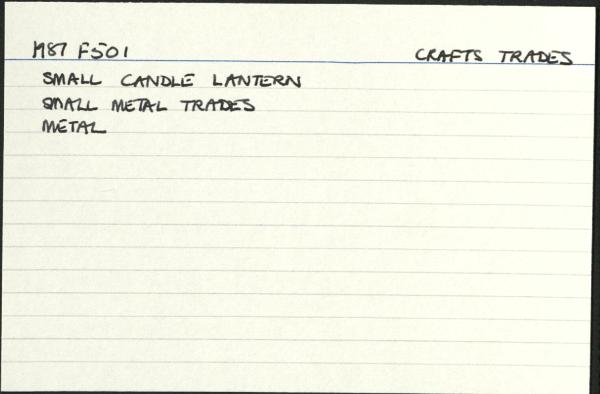 1987 F501 CRAFTS TRADES
SMALL CANDLE LANTERN
SMALL METAL TRADES
METAL